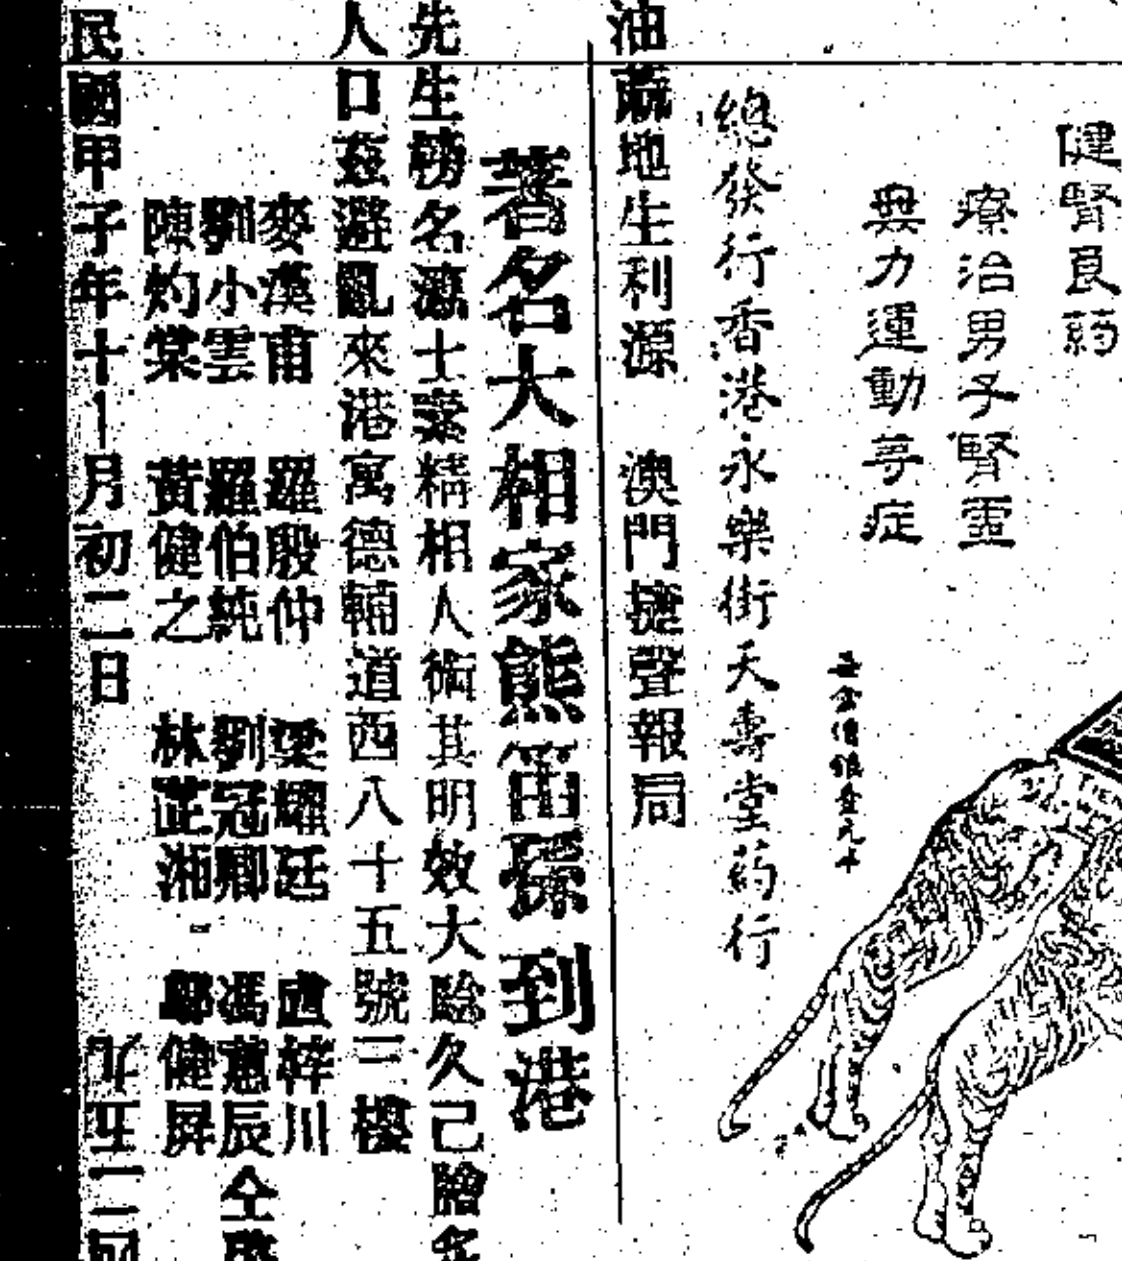 健腎良葯
療治男子腎靈
無力運動等症
每盒價銀壹元半
總發行香港永樂街天壽堂葯行
油蔴地生利源 澳門捷聲報局
著名大相家熊笛孫到港
先生 名 士素精相人術其明效大驗久已膾
人口茲避亂來港寓德輔道西八十五號三樓
麥漢甫 羅殷仲 梁耀廷 盧梓川
劉小雲 羅伯純 劉冠卿 馮蕙辰 仝啓
陳灼棠 黃健之 林芷湘 鄺健屏
民國甲子年十一月初二日